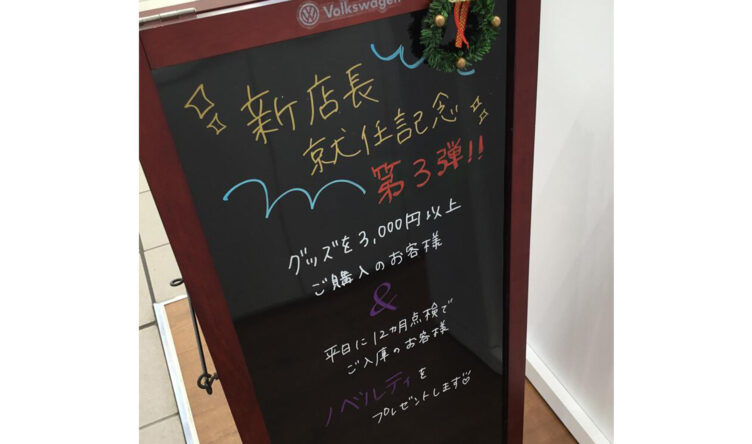 Volkswagen
新店長
就任記念
第3弾!!
グッズを3,000円以上
ご購入のお客様
&
平日に12ヵ月点検で
ご入庫のお客様
ノベルティを
プレゼントします